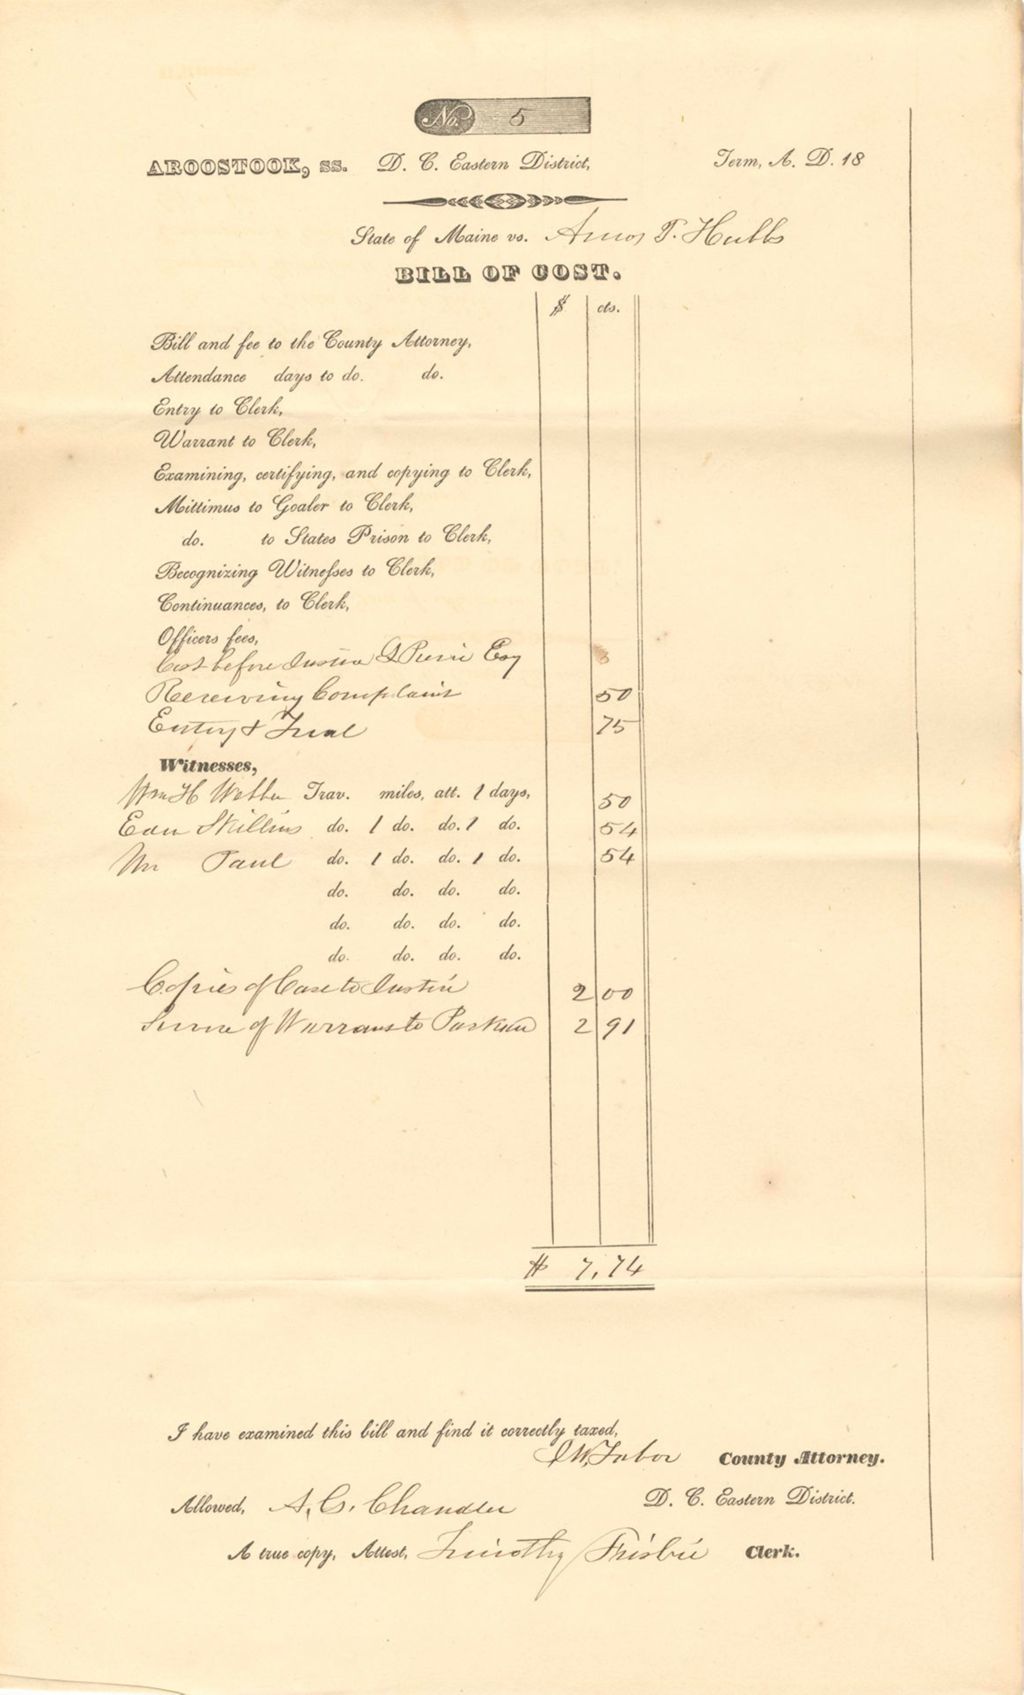 No. 5
AROOSTOOK, ss. D. C. Eastern District, Term, A. D. 18
State of Maine vs. Amos T. Hubbs
BILL OF COST.
$ cts.
Bill and fee to the County Attorney,
Attendance days to do. do.
Entry to Clerk,
Warrant to Clerk,
Examining, certifying, and copying to Clerk,
Mittimus to Goaler to Clerk,
do. to States Prison to Clerk,
Recognizing Witnesses to Clerk,
Continuances, to Clerk,
Officers fees,
Cost before Justice Esq
Receiving Complaint 50
Entry & Trial 75
Witnesses,
Wm H Webber Trav. miles, att. 1 days, 50
Skillins do. 1 do. do. 1 do. 54
Wm Paul do. 1 do. do. 1 do. 54
do. do. do. do.
do. do. do. do.
do. do. do. do.
Copies of Case to Justice 2 00
of Warrant to 2 91
$ 7,74
I have examined this bill and find it correctly taxed,
Tabor County Attorney.
D. C. Eastern District.
Allowed, A. G. Chandler
A true copy, Attest, Timothy Frisbie Clerk.